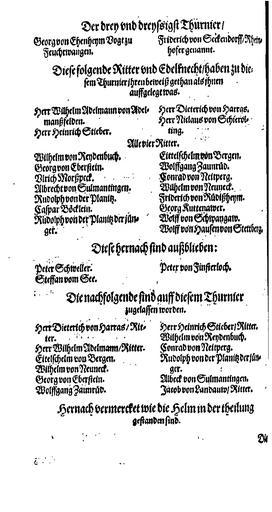 Der drey vnd dreyssigst Thurnier/
Georg von Ehenheym Vogt zu Feuchtwangen.
Friderich von Seckendorff/Rhein-
hofer genannt.
Diese folgende Ritter vnd Edelknecht/haben zu die-
sem Thurnier ihren beweiß gethan als ihnen
auffgelegt was.
Herr Wilhelm Adelmann von Adel-
mansfelden.
Herr Heinrich Stieber.
Herr Dietterich von Harras.
Herr Niclaus von Schierol-
ting.
Alle vier Ritter.
Wilhelm von Reydenbuch.
Georg von Eberstein.
Vlrich Morspeck.
Albrecht von Sulmantingen.
Rudolph von der Planitz.
Caspar Böcklin.
Rudolph von der Planitz der jün-
ger.
Eittelschelm von Bergen.
Wolffgang Zaunrüd.
Conrad von Neitperg.
Wilhelm von Neuneck.
Friderich von Rüdißheym.
Georg Kuttenawer.
Wolff von Schwangaw.
Wolff von Hausen von Stettberg.
Diese hernach sind außblieben:
Peter Schweller.
Steffan vom See.
Peter von Finsterloch.
Die nachfolgende sind auff diesem Thurnier
zugelassen worden.
Herr Dietterich von Harras/Rit-
ter.
Herr Wilhelm Adelmann/Ritter.
Eittelschelm von Bergen.
Wilhelm von Neuneck.
Georg von Eberstein.
Wolffgang Zaunrüd.
Herr Heinrich Stieber/Ritter.
Wilhelm von Reydenbuch.
Conrad von Neitperg.
Rudolph von der Planitz der jün-
ger.
Albeck von Sulmantingen.
Jacob von Landauw/Ritter.
Hernach vermercket wie die Helm in der theilung
gestanden sind.